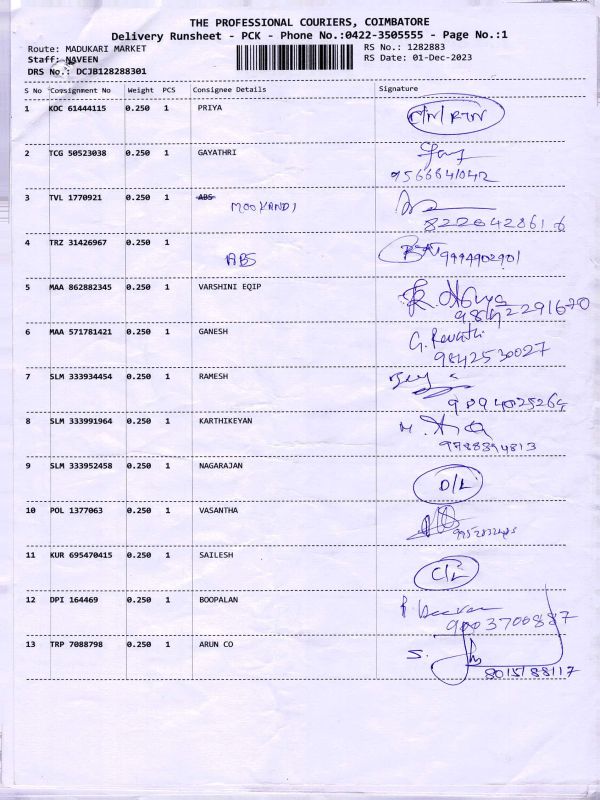 THE PROFESSIONAL COURIERS, COIMBATORE
Delivery Runsheet - PCK - Phone No.:0422-3505555 - Page No.:1
Route: MADUKARI MARKET RS No.: 1282883
Staff: NAVEEN RS Date: 01-Dec-2023
DRS No.: DCJB128288301
S No Consignment No Weight PCS Consignee Details Signature
1 KOC 61444115 0.250 1 PRIYA
2 TCG 50523038 0.250 1 GAYATHRI
9566641042
3 TVL 1770921 0.250 1 ABS
MOOKANDI
8220428616
4 TRZ 31426967 0.250 1
ABS 9994902901
5 MAA 862882345 0.250 1 VARSHINI EQIP
9842291670
6 MAA 571781421 0.250 1 GANESH G. Revathi
9842530027
7 SLM 333934454 0.250 1 RAMESH
9094025264
8 SLM 333991964 0.250 1 KARTHIKEYAN
9788894813
9 SLM 333952458 0.250 1 NAGARAJAN
D/L
10 POL 1377063 0.250 1 VASANTHA
11 KUR 695470415 0.250 1 SAILESH
C/L
12 DPI 164469 0.250 1 BOOPALAN
9003700887
13 TRP 7088798 0.250 1 ARUN CO S.
8015188117